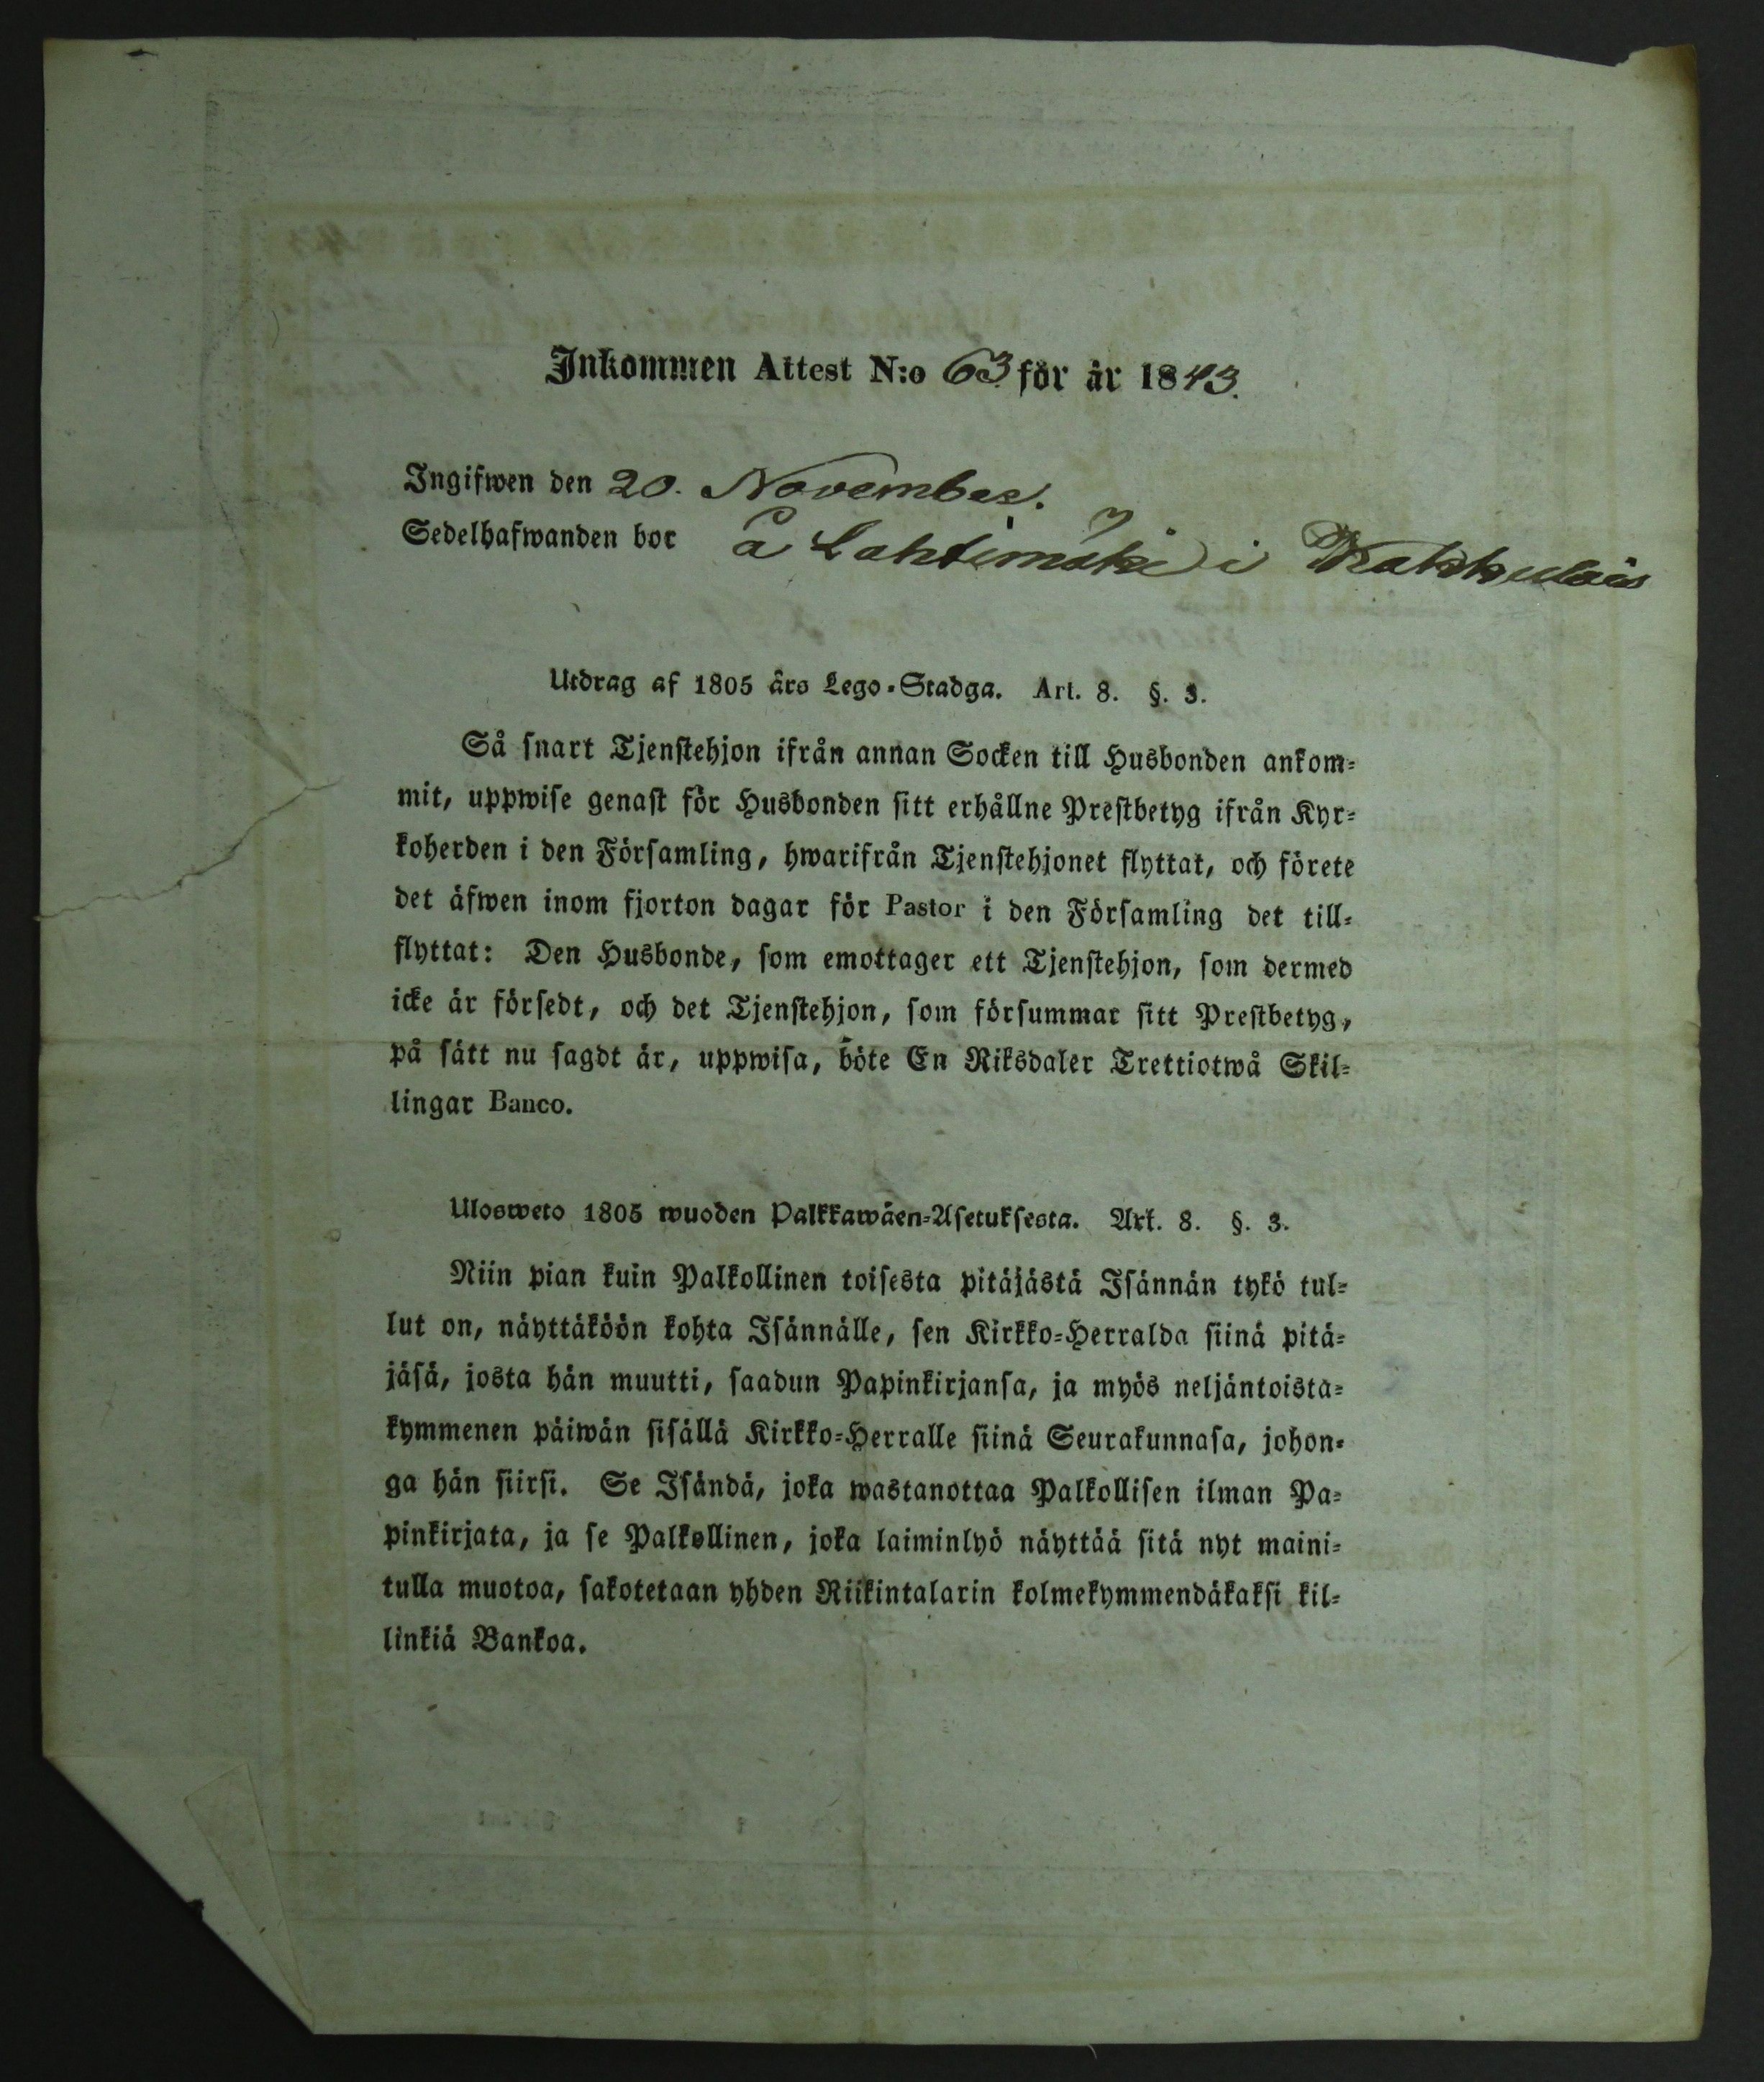 Inkommen Attest N:o 63 för år 1843.
Ingifwen den 20. November.
Sedelhafwanden bor å Lahtimäki i
Utdrag af 1805 års Lego-Stadga. Art. 8. §. 3.
Så snart Tjenstehjon ifrån annan Socken till Husbonden ankom=
mit, uppwise genast för Husbonden sitt erhållne Prestbetyg ifrån Kyr=
koherden i den Församling, hwarifrån Tjenstehjonet flyttat, och förete
det äfwen inom fjorton dagar för Pastor i den Församling det till=
flyttat: Den Husbonde, som emottager ett Tjenstehjon, som dermed
icke är försedt, och det Tjenstehjon, som försummar sitt Prestbetyg,
på sätt nu sagdt är, uppwisa, böte En Riksdaler Trettiotwå Skil=
lingar Banco.
Ulosweto 1805 wuoden Palkkawäen=Asetuksesta. Art. 8. §. 3.
Niin pian kuin Palkollinen toisesta pitäjästä Isännän tykö tul=
lut on, näyttäköön kohta Isännälle, sen Kirkko=Herralda siinä pitä=
jäsä, josta hän muutti, saadun Papinkirjansa, ja myös neljäntoista=
kymmenen päiwän sisällä Kirkko=Herralle siinä Seurakunnasa, johon=
ga hän siirsi. Se Isändä, joka wastanottaa Palkollisen ilman Pa=
pinkirjata, ja se Palkollinen, joka laiminlyö näyttää sitä nyt maini=
tulla muotoa, sakotetaan yhden Riikintalarin kolmekymmendäkaksi kil=
linkiä Bankoa.